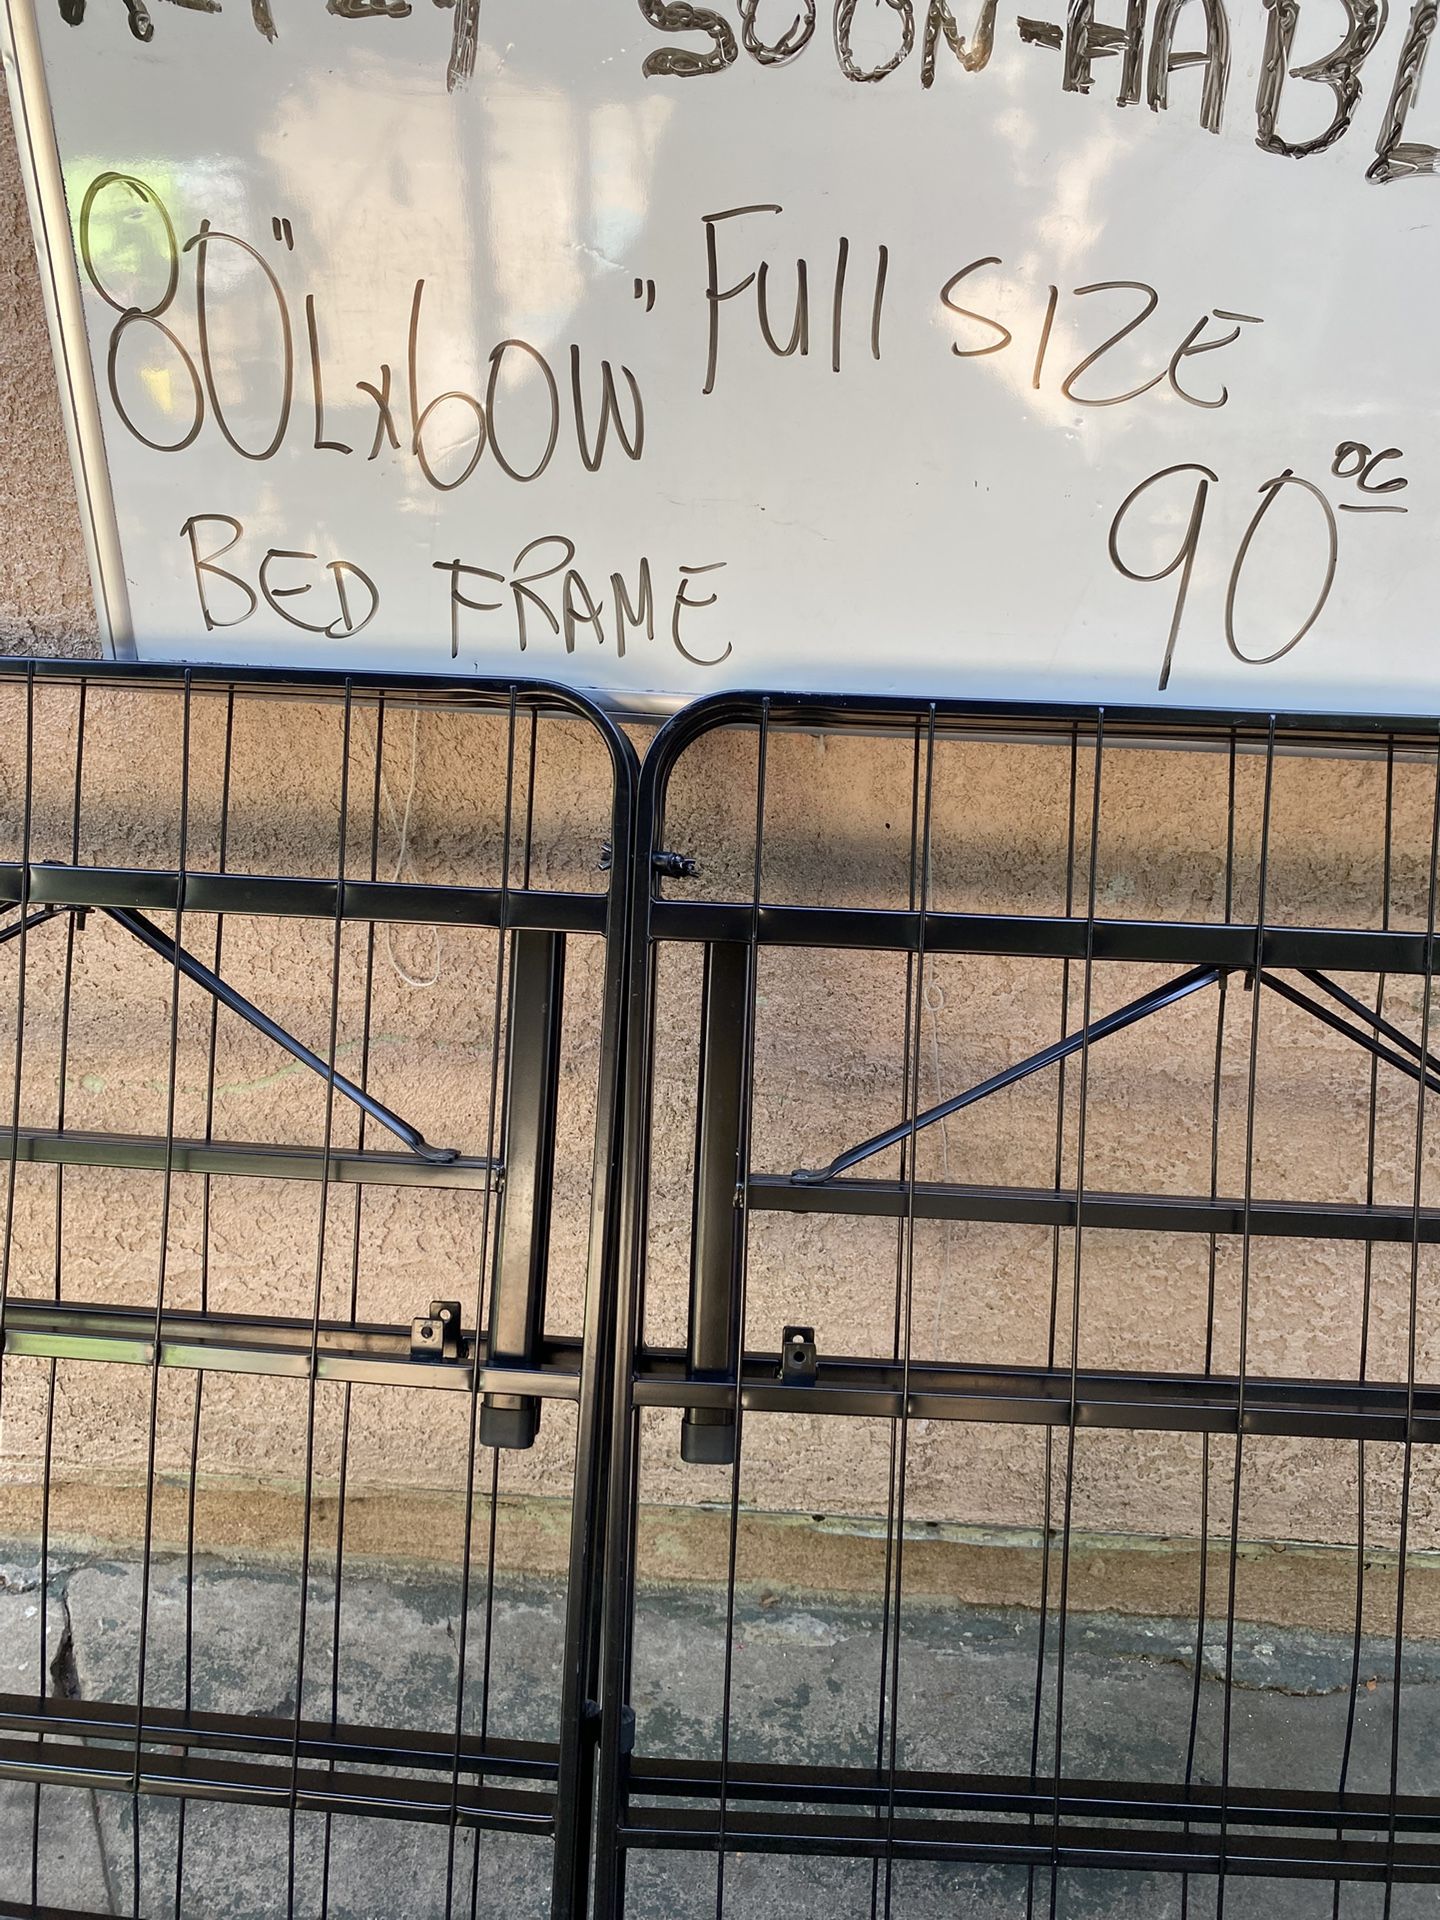 SOON-HABL
80"L x 60W" Full SIZE
BED FRAME 90⁰⁰